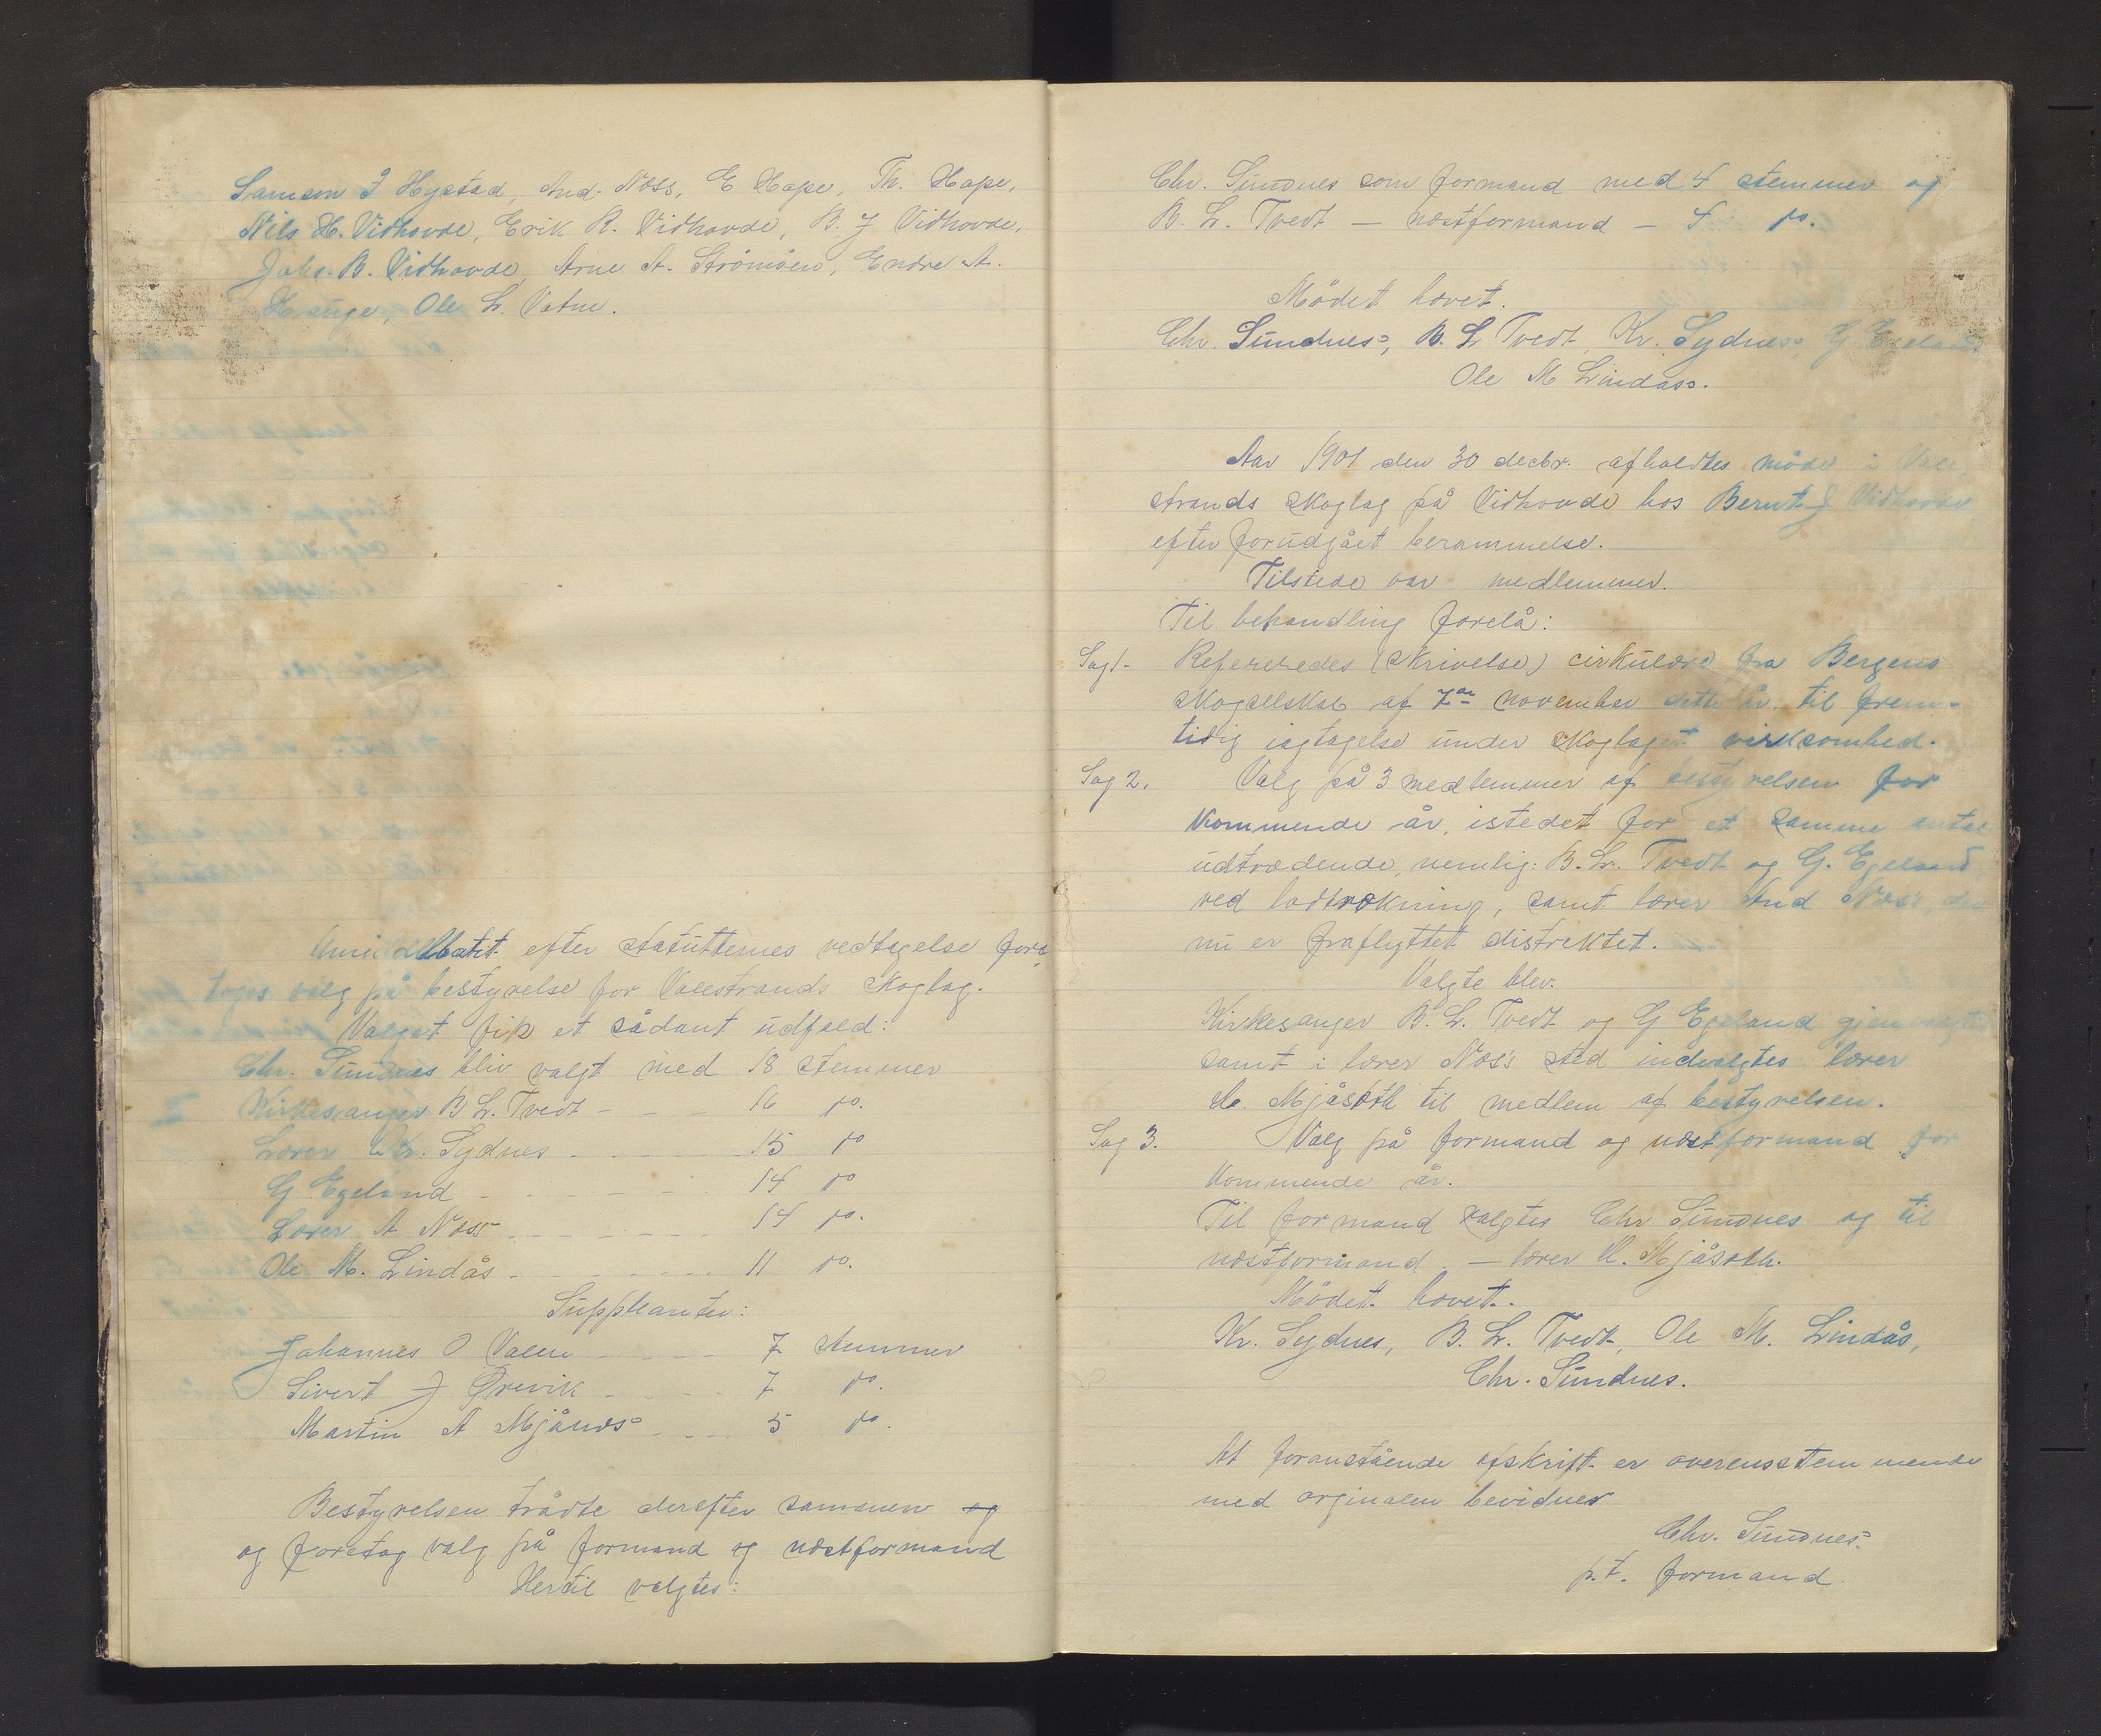 Samson J Hystad, And. Næss, E Hope, Th. Hope,
Nils H. Vidhovde, Erik R. Vidhovde, B. J Vidhovde,
Johs. B. Vidhovde, Arne A. Strömöen, Endre A.
Hauge, Ole L. Vatne.
Umiddelbart efter statutternes vedtagelse fore
toges valg på bestyrelse for Valestrands skoglag.
Valget fik et sådant udfald:
Chr. Sundnes bliv valgt med 18 stemmer
Kirkesanger B L. Tvedt - - - 16 do.
Lærer Kr. Sydnes - - - - 15 do
G Egeland - - - - - 14 do
Lærer A Næss - - - - - 14 do.
Ole M. Lindås - - - - - 11 do.
Suppleanter:
Johannes O Valen - - - - 7 stemmer
Sivert J Ørevik - - - - 7 do.
Martin A Mjånes - - - - 5 do.
Bestyrelsen trådte derefter sammen og
og foretog valg på formand og næstformand
Hertil valgtes:
Chr. Sundnes som formand med 4 stemmer og
B. L. Tvedt — næstformand — 4 do.
Mödet hævet.
Chr. Sundnes, B. L Tvedt, Kr. Sydnes, G Egeland
Ole M Lindås.
Aar 1901 den 30 decbr. afholdtes möde i Vale
strands skoglag på Vidhovde hos Bernt J Vidhovde
efter forudgået berammelse.
Tilstede var medlemmer.
Til behandling forelå:
Sag 1- Refereredes (skrivelse) cirkulære fra Bergens
skogselskab af 7de november dette år til frem-
tidig iagtagelse under skoglaget virksomhed.
Sag 2. Valg på 3 medlemmer af bestyrelsen for
kommende år, istedet for et samme antal
udtrædende, nemlig: B. L. Tvedt og G. Egeland
ved lodtrækning, samt lærer And Næss, der
nu er fraflyttet distriktet.
Valgte blev:
Kirkesanger B. L. Tvedt og G Egeland gjenvalgtes
samt i lærer Næss sted indvalgtes lærer
Mjåseth til medlem af bestyrelsen.
Sag 3. Valg på formand og næstformand for
kommende år.
Til formand valgtes Chr Sundnes og til
næstformand — lærer Mjåseth.
Mödet hævet.
Kr. Sydnes, B. L. Tvedt, Ole M. Lindås,
Chr. Sundnes.
At foranstående afskrift er overensstemmende
med orginalen bevidner
Chr. Sundnes
p.t. formand.